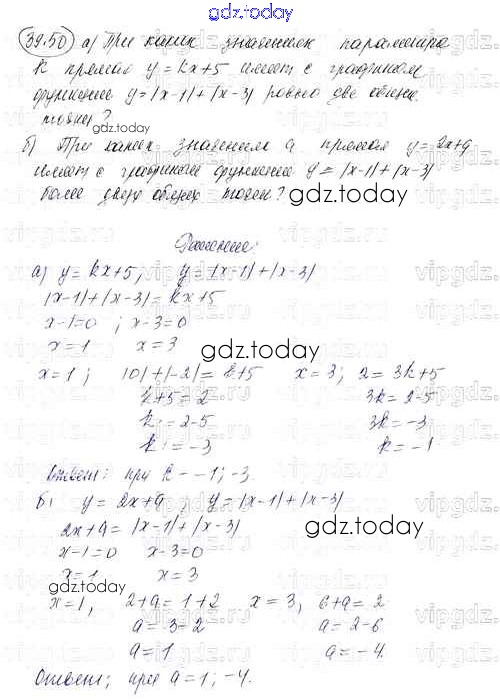 gdz.today
39.50 а) При каких значениях параметра
k прямая y=kx+5 имеет с графиком
функции y=|x-1|+|x-3| ровно две общие
точки?
gdz.today
б) При каких значениях a прямая y=2x+a
имеет с графиком функции y=|x-1|+|x-3|
более двух общих точек?
gdz.today
Решение:
а) y=kx+5, y=|x-1|+|x-3|
|x-1|+|x-3|=kx+5
x-1=0 ; x-3=0
x=1 x=3
gdz.today
x=1; |0|+|-2|=k+5 x=3; 2=3k+5
k+5=2 3k=2-5
k=2-5 3k=-3
k=-3 k=-1
Ответ: при k=-1;-3.
б) y=2x+a, y=|x-1|+|x-3|
2x+a=|x-1|+|x-3|
x-1=0 x-3=0
x=1 x=3
gdz.today
x=1, 2+a=1+2 x=3, 6+a=2
a=3-2 a=2-6
a=1 a=-4
gdz.today
Ответ; при a=1;-4.